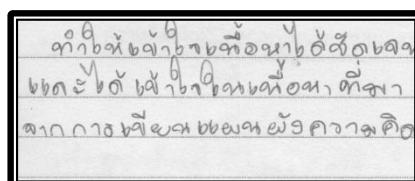 ทำให้เข้าใจเนื้อหาได้ชัดเจน
และได้เข้าใจในเนื้อหา ที่มา
จากการเขียนแผนผังความคิด